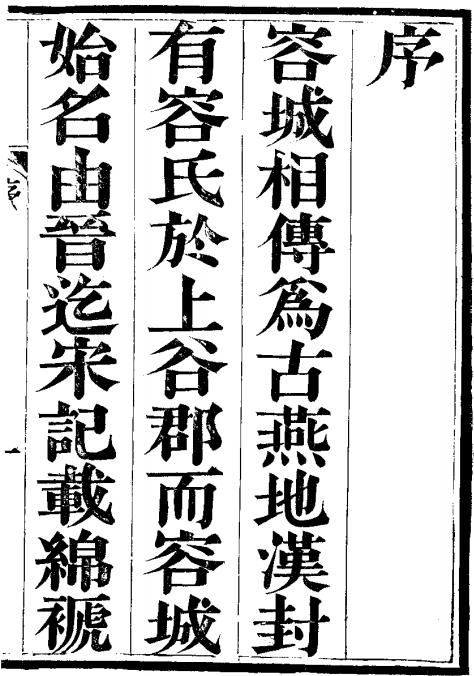 序
容城相傳爲古燕地漢封
有容氏於上谷郡而容城
始名由晉迄宋記載綿褫
序
一